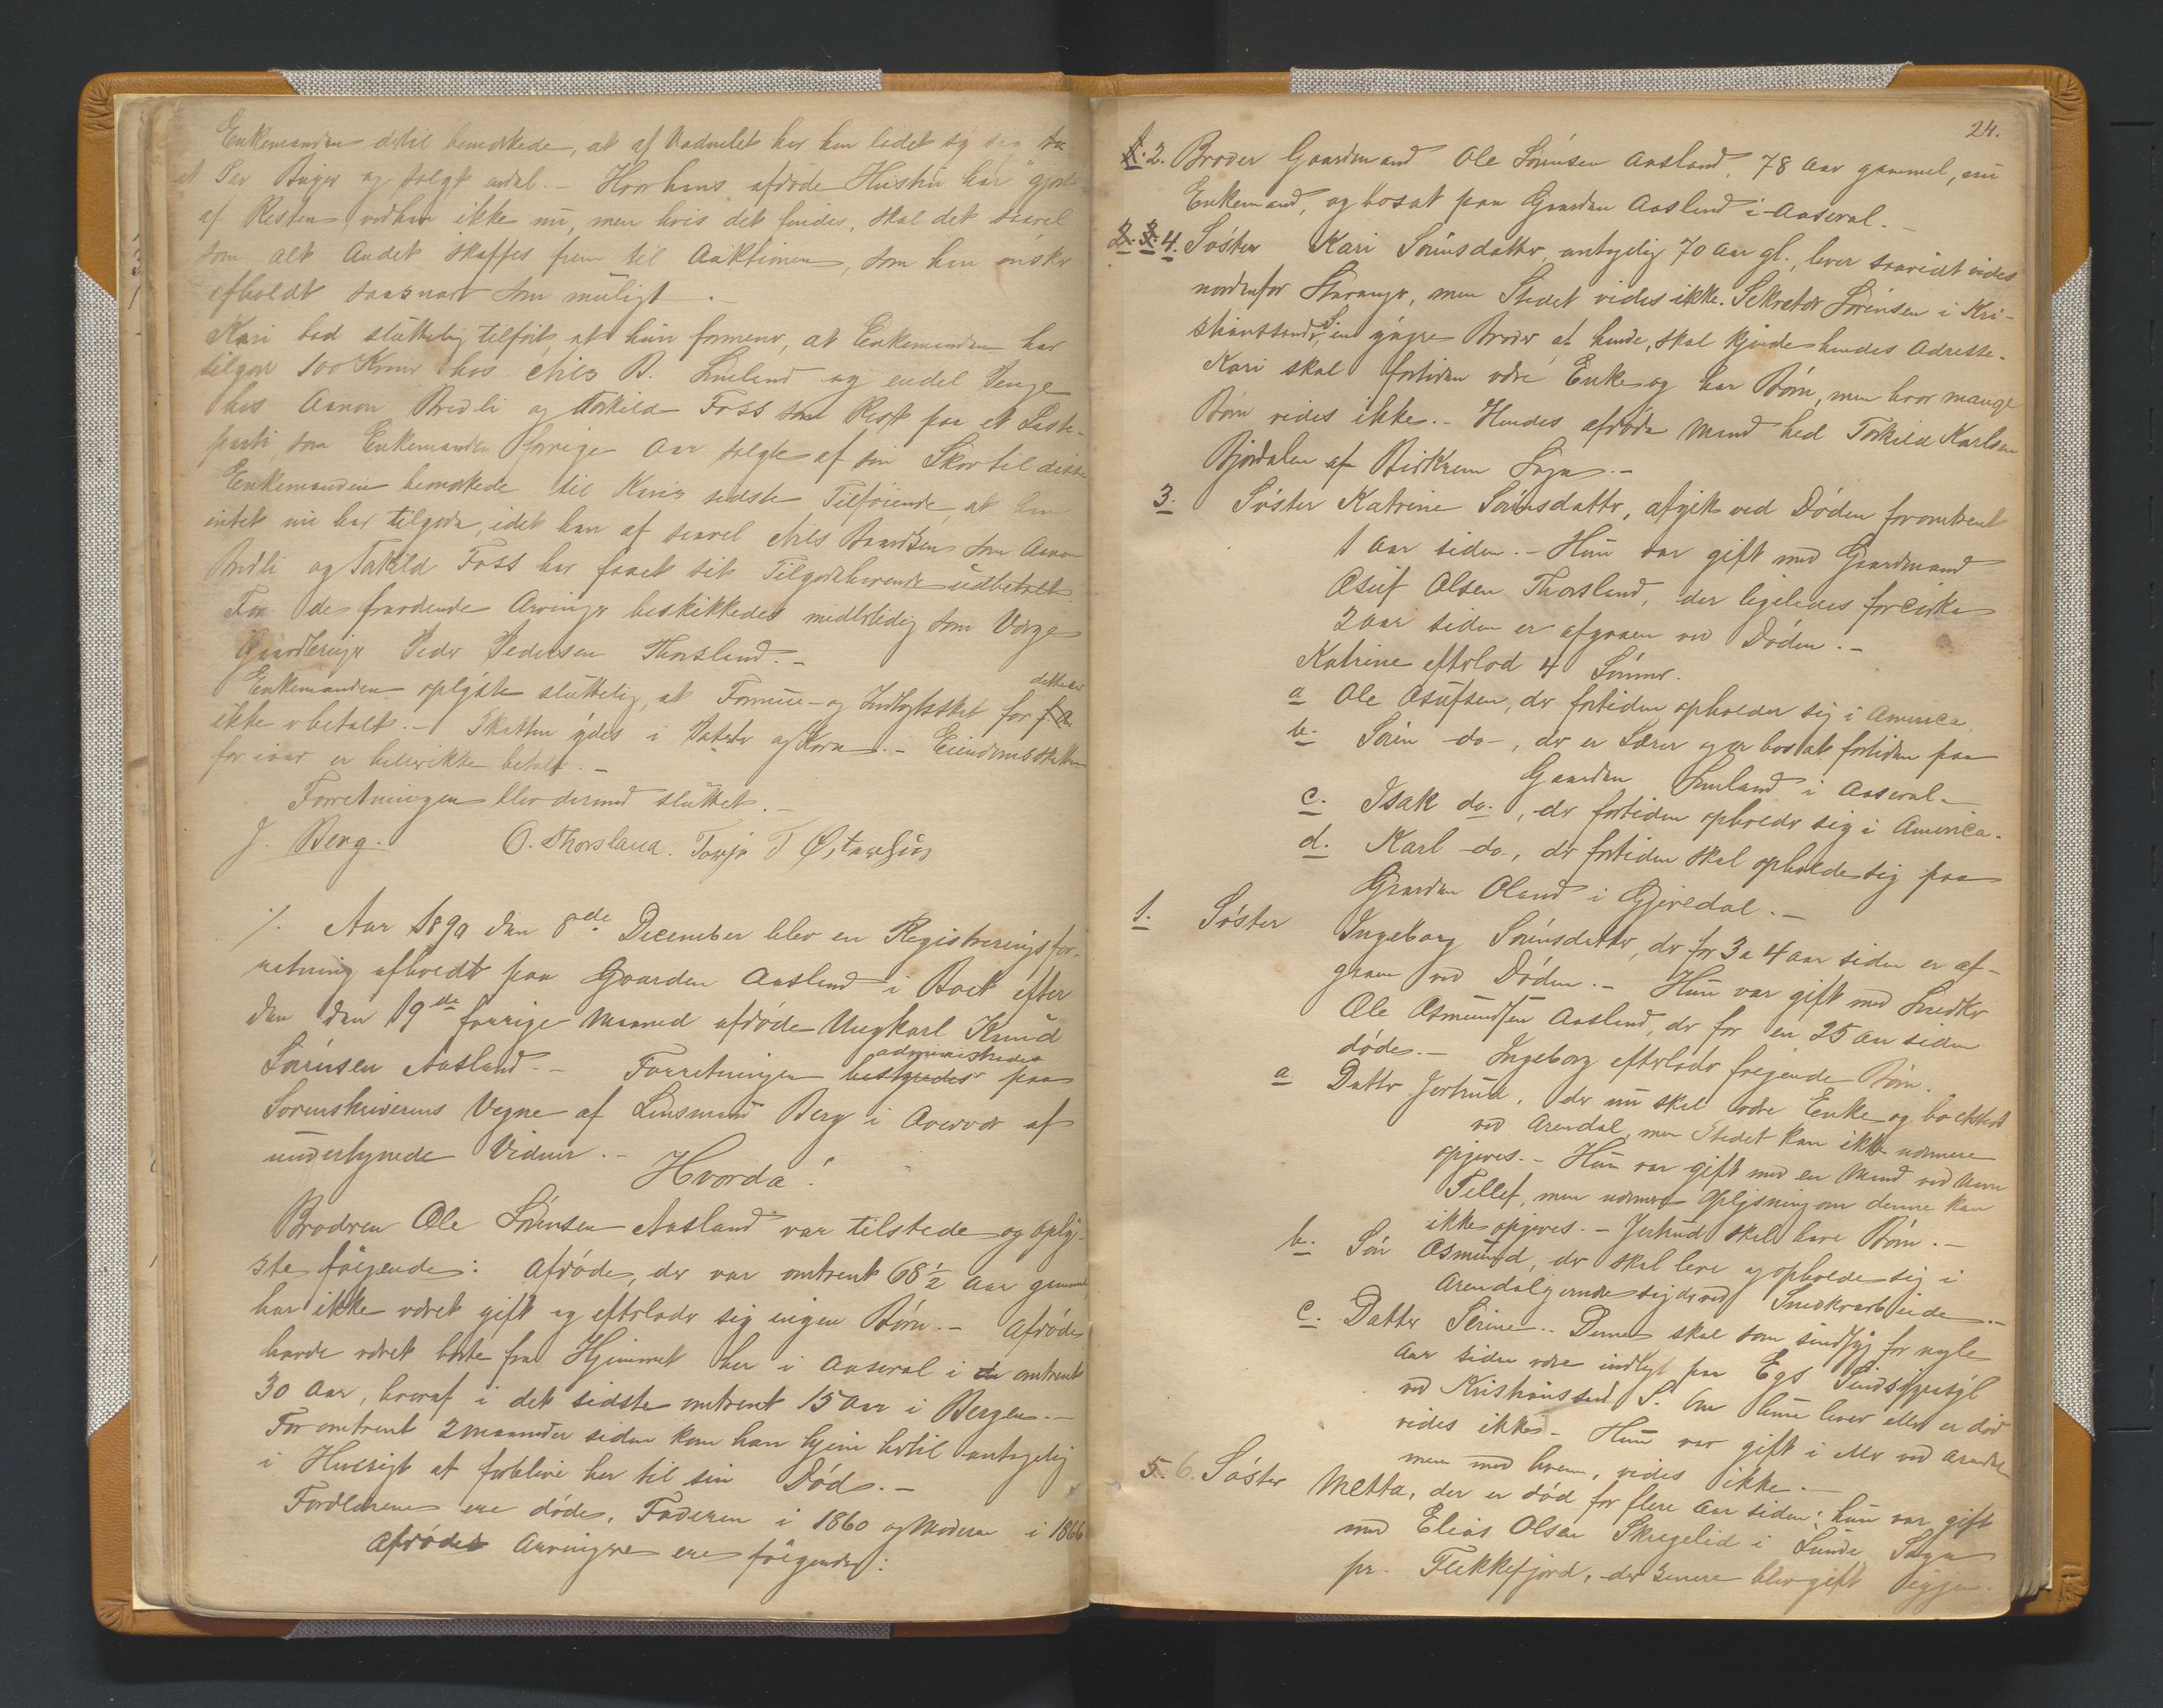 Enkemanden dertil bemærkede, at af Vadmelet har han ladet sy sig
et Par Buxer og solgt endel. – Hvor hans afdøde Hustru har gjort
af Resten, ved han ikke nu, men hvis det findes, skal det saavel
som alt Andet skaffes frem til Auktionen, som han ønsker
afholdt saasnart som muligt. –
Kari bad sluttelig tilført, at hun formener, at Enkemanden har
tilgode 100 Kroner hos Nils B. Lineland og endel Penge
hos Aanon Bredli og Torkild Foss som Rest paa et Laste-
parti, som Enkemanden forrige Aar solgte af sin Skov til disse
Enkemanden bemærkede til Karis sidste Tilførende, at han
intet nu har tilgode, idet han af saavel Nils Baardsen som Aanon
Bredli og Torkild Foss har faaet sit Tilgodehavende udbetalt.
For de fraværende Arvinger beskikkedes midlertidig som Værge
Gaardbruger Peder Pedersen Thorsland. –
Enkemanden oplyste sluttelig, at Formue- og Indtægtsskat for dette Aar
ikke er betalt. – Skatten ydes i Poteter og Korn. – Eiendomsskatten
for iaar er heller ikke betalt. –
Forretningen blev dermed sluttet. –
J. Berg. O. Thorsland.
Aar 1890 den 8de December blev en Registreringsfor-
retning afholdt paa Gaarden Aasland i Boet efter
den den 19de forrige Maaned afdøde Ungkarl Knud
Sørensen Aasland. – Forretningen bestyredes administredes paa
Sorenskriverens Vegne af Lensmand Berg i Overvær af
undertegnede Vidner. –
Hvorda:
Broderen Ole Sørensen Aasland var tilstede og oply-
ste følgende: Afdøde, der var omtrent 68½ Aar gammel
har ikke været gift og efterlader sig ingen Børn. – Afdøde
havde været borte fra Hjemmet her i Aaseral i omtrent
30 Aar, hvoraf i det sidste omtrent 15 Aar i Bergen. –
For omtrent 2 Maaneder siden kom han hjem hertil antagelig
i Hensigt at forblive her til sin Død. –
Forældrene ere døde, Faderen i 1860 og Moderen i 1866
Afdødes Arvingere ere følgende:
24.
1. 2. Broder Gaardmand Ole Sørensen Aasland, 78 Aar gammel, nu
Enkemand, og bosat paa Gaarden Aasland i Aaseral. –
2. 3. 4. Søster Kari Sørensdatter, antagelig 70 Aar gl., lever saavidt vides
nordenfor Stavanger, men Stedet vides ikke. Sekretær Sørensen i Kri-
stianssand S, en yngre Broder af hende, skal kjende hendes Adresse.
Kari skal fortiden være Enke og har Børn, men hvor mange
Børn vides ikke. – Hendes afdøde Mand hed Torkild Karlsen
Bjordalen af Birkrem Sogn. –
3. Søster Katrine Sørensdatter, afgik ved Døden for omtrent
1 Aar siden. – Hun var gift med Gaardmand
Osuf Olsen Thorsland, der ligeledes for cirka
2 Aar siden er afgaaen ved Døden. –
Katrine efterlod 4 Sønner.
a Ole Osufsen, der fortiden opholder sig i America
b. Søren do, der er Lærer og er bosat fortiden paa
Gaarden Lineland i Aaseral. –
c. Isak do., der fortiden opholder sig i America.
d. Karl do., der fortiden skal opholde sig paa
Gaarden Oland i Gjevedal. –
1. Søster Ingeborg Sørensdatter, der for 3 a 4 Aar siden er af-
gaaen ved Døden. – Hun var gift med Snedker
Ole Osmundsen Aasland, der for en 25 Aar siden
døde. – Ingeborg efterlader følgende Børn.
a. Datter Jertrud, der nu skal være Enke og bosat
ved Arendal, men Stedet kan ikke nærmere
opgives. – Hun var gift med en Mand ved Navn
Tellef, men nærmere Oplysning om denne kan
ikke opgives. – Jertrud skal have Børn. –
b. Søn Osmund, der skal leve og opholde sig i
Arendal og ernære sig der ved Snedkerarbeide. –
c. Datter Serine. – Denne skal som sindssyg for nogle
Aar siden være indlagt paa Egs Sindssygeasyl
ved Kristianssand S. Om hun lever eller er død
vides ikke. – Hun var gift i ved Arendal
men med hvem, vides ikke. –
5. 6. Søster Metta, der er død for flere Aar siden; hun var gift
med Elias Olsen Skregelid i Lunde Sogn
pr. Flekkefjord, der senere blev gift igjen.